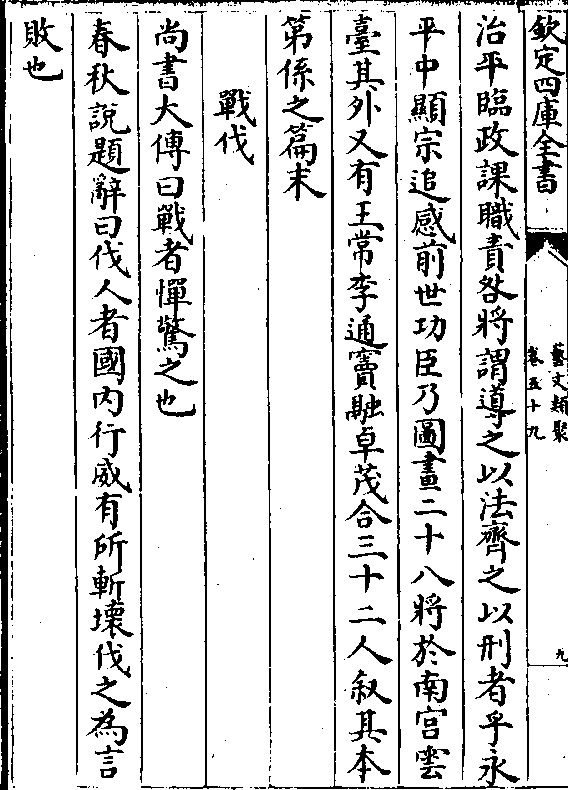 欽定四庫全書
藝文類聚
卷五十九
九
治平臨政課職責咎將謂導之以法齊之以刑者乎永
平中顯宗追感前世功臣乃圖畫二十八將於南宫雲
臺其外又有王常李通竇融卓茂合三十二人叙其本
第係之篇末
戰伐
尚書大傳曰戰者憚驚之也
春秋說題辭曰伐人者國内行威有所斬壞伐之為言
敗也